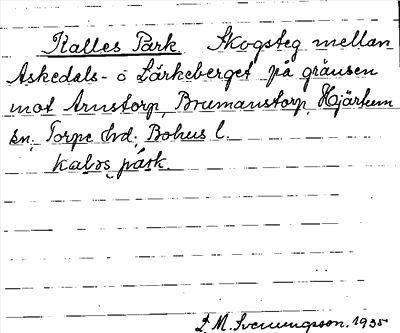 Kalles Park Skogsteg mellan
Askedals- o Lärkeberget på gränsen
mot Arnstorp, Brumanstorp, Hjärtum
sn, Torpe hd; Bohus l.
kalos park.
L. M. Svenungsson. 1935